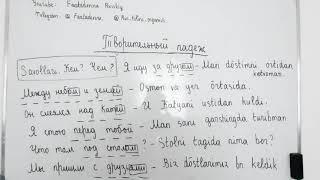 Youtube: Faxladinna Rusky
Telegram: @ Faxladinna. @ Rus_tilini_organish
Творительный падеж
Savollari. Кем? Чем? Я иду за другом - Man do'stimni ortidan ketvoman.
Между небом и землёй - Osmon va yer o'rtasida.
Он смеялся над Катей - U Katyani ustidan kuldi.
Я стою перед тобой - Man sani qarshingda turubman
Что там под столом? - Stolni tagida nima bor?
Мы пришли с друзьями - Biz do'stlarimiz bn keldik